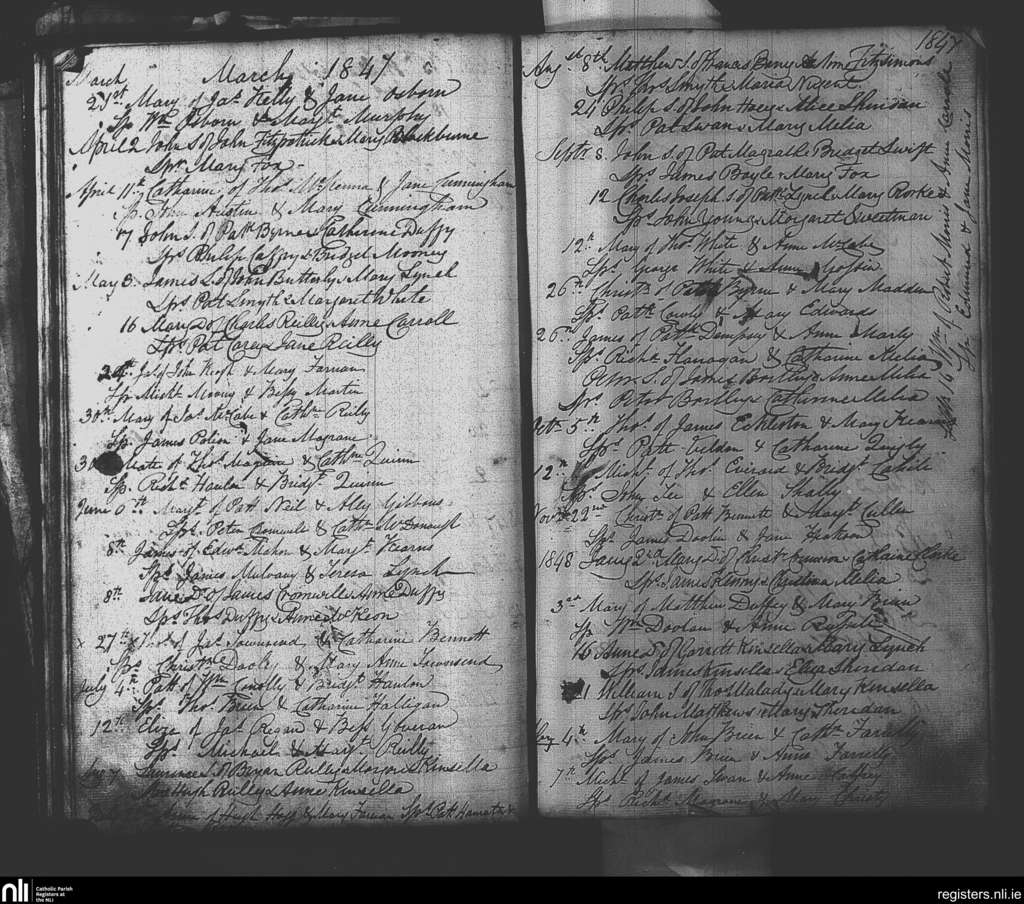 March 1847
March
21st Mary of Jas. Kelly & Jane Osborn
Sp Wm Osborn & Margt. Murphy
April 2 John S of John Fitzpatrick & Mary Blackburne
Sprs Mary Fox
April 11th Catharine of Thos. McKenna & Jane Cunningham
Sp. John Austin & Mary Cunningham
17 John S. of Patt Byrne & Catherine Duffy
Sprs Philip Caffrey & Bridget Mooney
May 8 James S. of John Butterly & Mary Lynch
Sprs Pat Smyth & Margaret White
16 Mary D of Charles Reilly & Anne Carroll
Sprs. Pat Carey & Jane Reilly
24th July John Keogh & Mary Farnan
Sp Michl. Mooney & Bessy Martin
30th Mary of Jas. McCabe & Cathn. Reilly
Sp. James & Jane Magrane
30 Kate of Thos. Magrane & Cathne Quinn
Sp. Richd. Hanlon & Bridgt. Quinn
June 6th Margt. of Patt Neil & Alley Gibbons
Sps. Peter & Cathn. McDonough
8th James of Edwd. Mahon & Margt. Kearns
Sps. James Mulvany & Teresa Lynch
8th Jane D. of James Cromwell & Anne Duffy
Sprs. Thos Duffy & Anne McKeon
x 27th of Jas. Townsend & Catharine Bennett
Sps. Christn. Dooley & Mary Anne Townsend
July 4th Patt of Wm. Conolly & Bridgt. Hanlon
Sps. Thos. Breen & Catharine Halligan
12th Eliza of Jas. Regan & Bess Goveran
Sps. Michael & Margt. Reilly
Laurence S. of Bryan Reilly & Marjory Kinsella
Sprs Hugh Reilly & Anne Kinsella
of Hugh & Mary Farnan Sps. Patt
1847
Augst 8th Matthew S. of Francis & Ann Fitzsimons
Sprs. Thos Smyth & Maria Nugent
24 Philip S of John Hoey & Alice Sheridan
Sprs. Pat Swan & Mary Melia
Septr. 8. John S. of Pat Magrath & Bridget Swift
Sprs James Boyle & Mary Fox
12 Charles Joseph S of Patt Lynch & Mary Rorke
Sprs. John Young & Margaret Sweetman
12th Mary of Thos. White & Anne McCabe
Sps. George White & Anne
26th Christr. S. Peter Byrne & Mary Madden
Sps. Patt & Mary Edwards
26th James of Patt Dempsey & Anne Marly
Sps. Richd. Flanagan & Catharine Melia
S. of James & Anne Melia
Sprs. & Catherine Melia
Octr. 5th Thos. of James Eccleston & Mary
Sps. Patt Veldon & Catharine Quigly
12th Michl. of Thos. & Bridgt. Cahill
Sps. John Lee & Ellen Shally
Novr. 22nd Christn. of Patt Bennett & Margt. Cullen
Sps. James Doolin & Jane
1848 Jany 2nd Mary D. of & Catharine Clarke
Sprs. James Kenny & Christian Melia
3rd Mary of Matthew Duffey & Mary Brian
Sp. Wm Doolan & Anne
16 Anne D of Garrett Kinsella & Mary Lynch
Sprs. James Kinsella & Eliza Sheridan
William S of Thos Malady & Mary Kinsella
Sprs John Matthews & Mary Sheridan
4th Mary of John Breen & Cathn. Farrelly
Sps. James Breen & Anne Farrelly
7th Michl. of James Swan & Anne Caffrey
Sps. Richd. Magrane & Mary Christy
16 Wm. of Robert Morris & Anne
Sp. Edmund & Jane Morris
nli Catholic Parish
Registers at
the NLI
registers.nli.ie